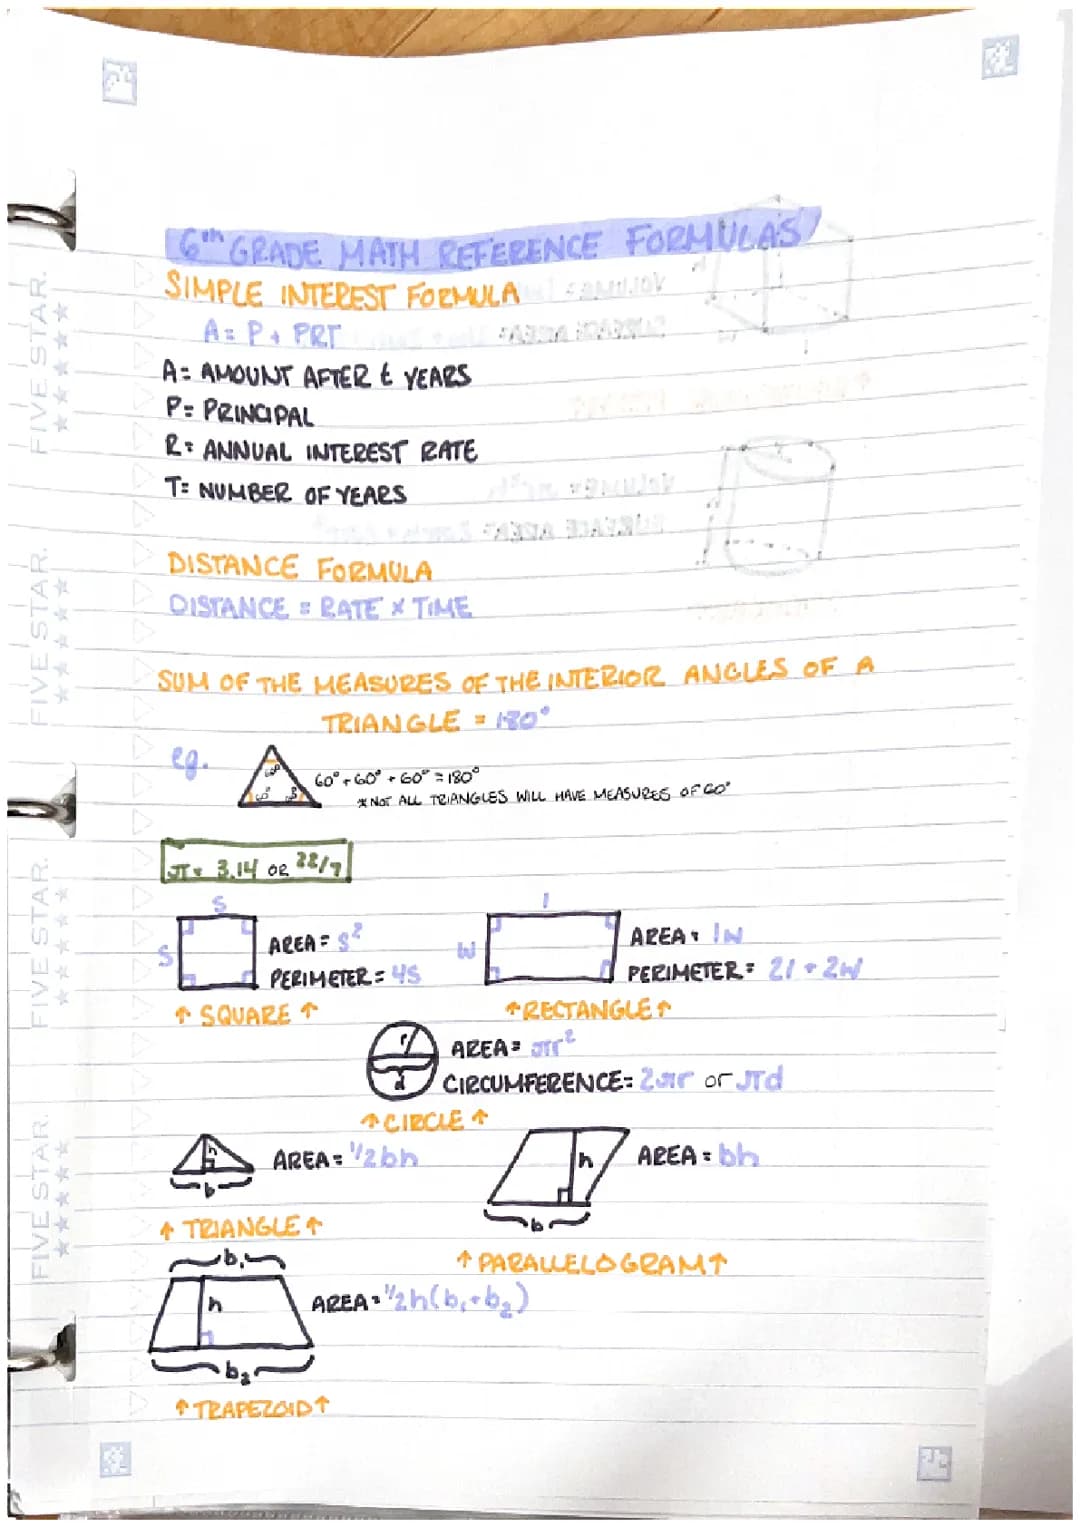 6th GRADE MATH REFERENCE FORMULAS
SIMPLE INTEREST FORMULA
A = P + PRT
A = AMOUNT AFTER t YEARS
P = PRINCIPAL
R = ANNUAL INTEREST RATE
T = NUMBER OF YEARS
DISTANCE FORMULA
DISTANCE = RATE × TIME
SUM OF THE MEASURES OF THE INTERIOR ANGLES OF A
TRIANGLE = 180°
eg.
60° + 60° + 60° = 180°
* NOT ALL TRIANGLES WILL HAVE MEASURES OF 60°
π = 3.14 OR 22/7
S
S
AREA = S²
PERIMETER = 4S
↑ SQUARE ↑
l
W
AREA = lW
PERIMETER = 2l + 2W
↑ RECTANGLE ↑
r
d
AREA = πr²
CIRCUMFERENCE = 2πr or πd
↑ CIRCLE ↑
h
b
AREA = 1/2bh
↑ TRIANGLE ↑
h
b
AREA = bh
↑ PARALLELOGRAM ↑
b₁
h
b₂
AREA = 1/2h(b₁+b₂)
↑ TRAPEZOID ↑
FIVE STAR.
FIVE STAR.
FIVE STAR.
FIVE STAR.